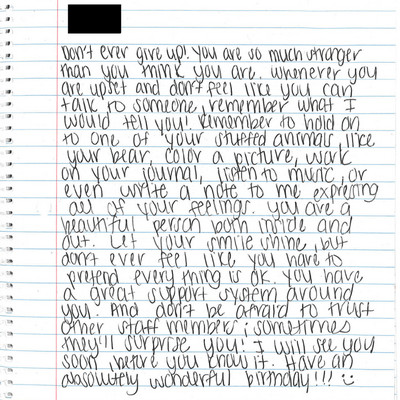 Don't ever give up! You are so much stronger
than you think you are. Whenever you
are upset and don't feel like you can
talk to someone, remember what I
would tell you! Remember to hold on
to one of your stuffed animals, like
your bear, color a picture, work
on your journal, listen to music, or
even write a note to me expressing
all of your feelings. You are a
beautiful person both inside and
out. Let your smile shine, but
don't ever feel like you have to
pretend everything is ok. You have
a great support system around
you. And don't be afraid to trust
other staff members; sometimes
they'll surprise you! I will see you
soon, before you know it. Have an
absolutely wonderful birthday!!!